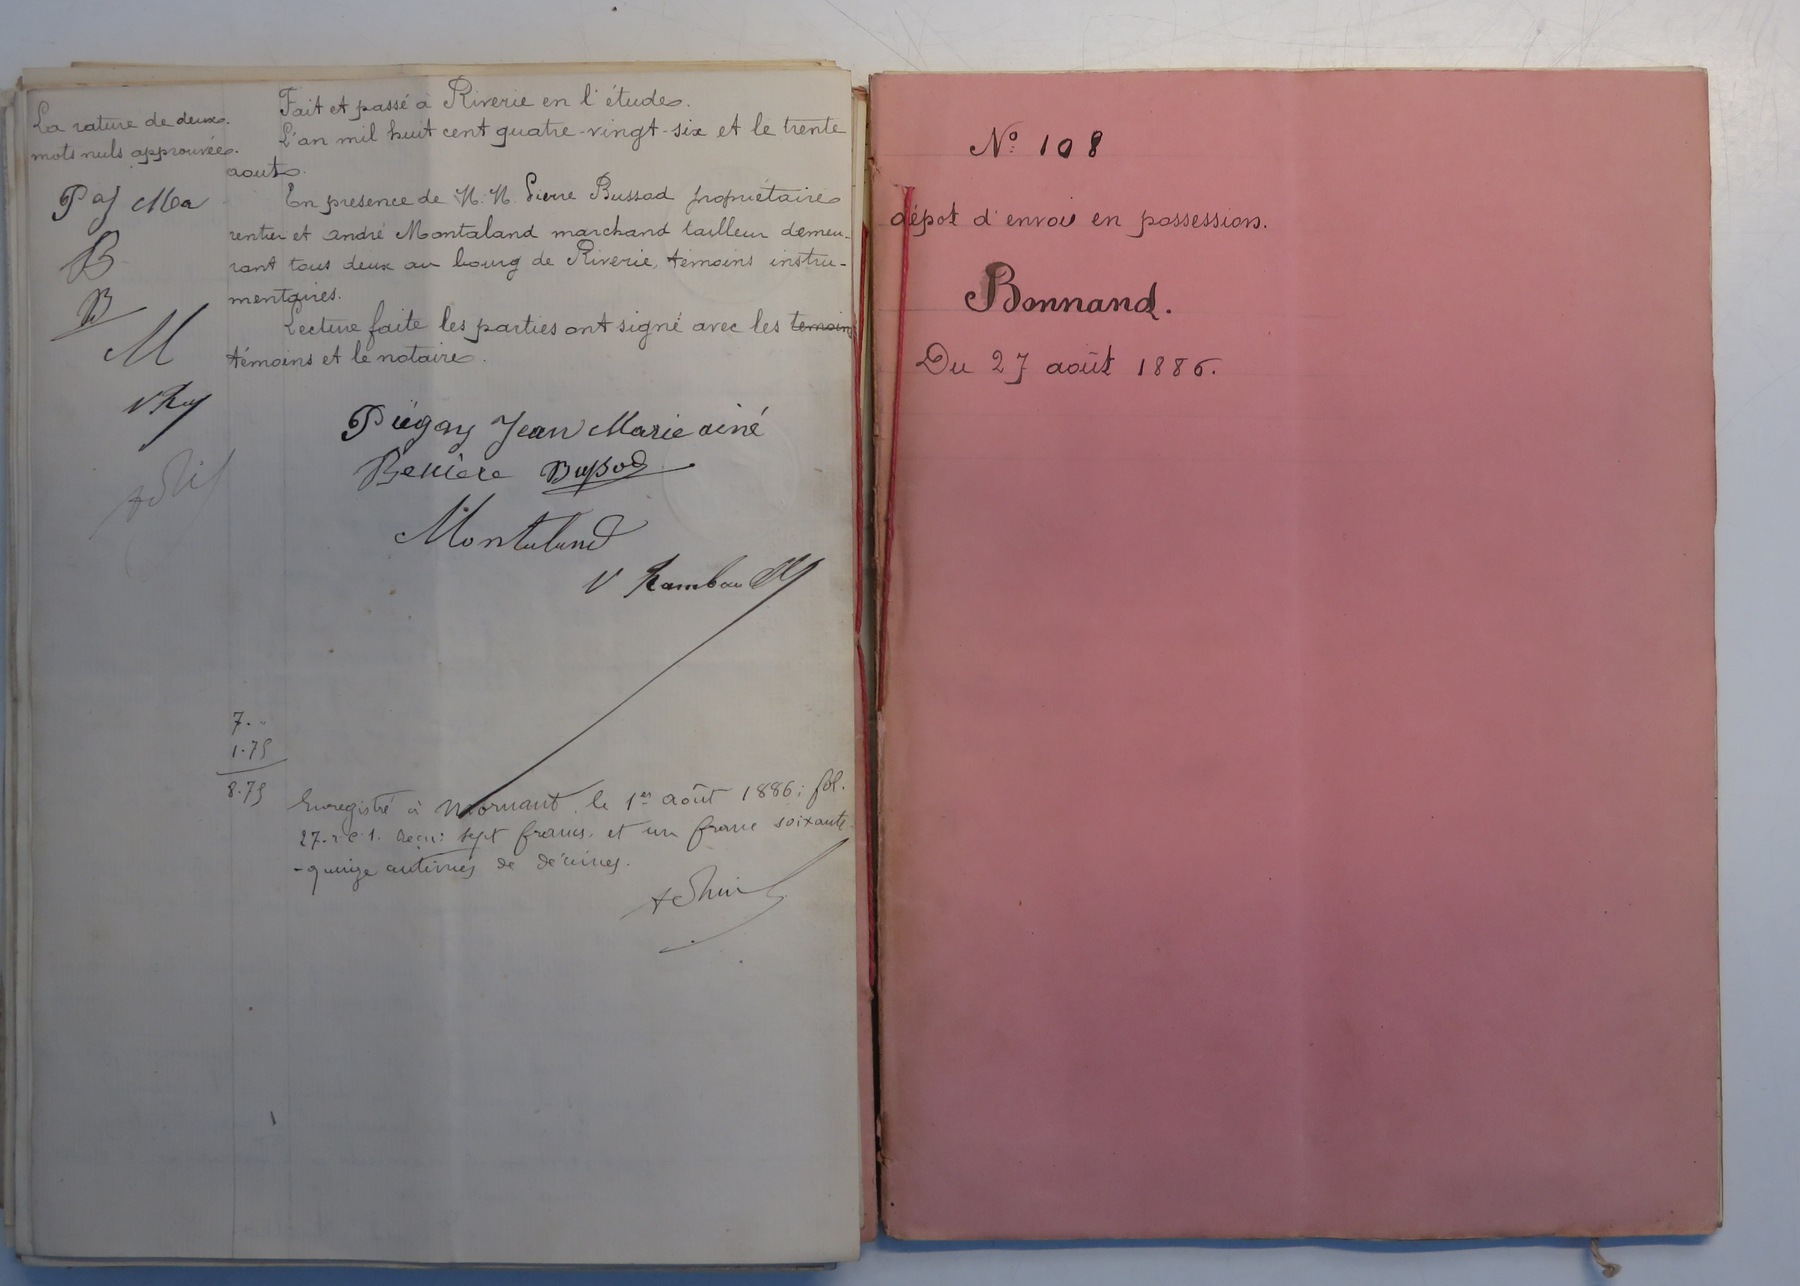 La rature de deux
mots nuls approuvée.
P aj Ma
B
B
M
Fait et passé à Riverie en l'étude.
L'an mil huit cent quatre-vingt-six et le trente
aout.
En presence de M.M. Pierre Bussod propriétaire
rentier et andré Montaland marchand tailleur demeu-
rant tous deux au bourg de Riverie, témoins instru-
mentaires.
Lecture faite les parties ont signé avec les temoins
témoins et le notaire.
Piégay Jean Marie ainé
Benière Bussod
Montaland
V Rambaud
7. "
1.75
8.75
Enregistré à Mornant, le 1er août 1886; fol.
27. r. c. 1. Reçu: sept francs, et un franc soixante-
-quinze centimes de décimes.
N° 108
dépot d'envoi en possession.
Bonnand.
Du 27 août 1886.